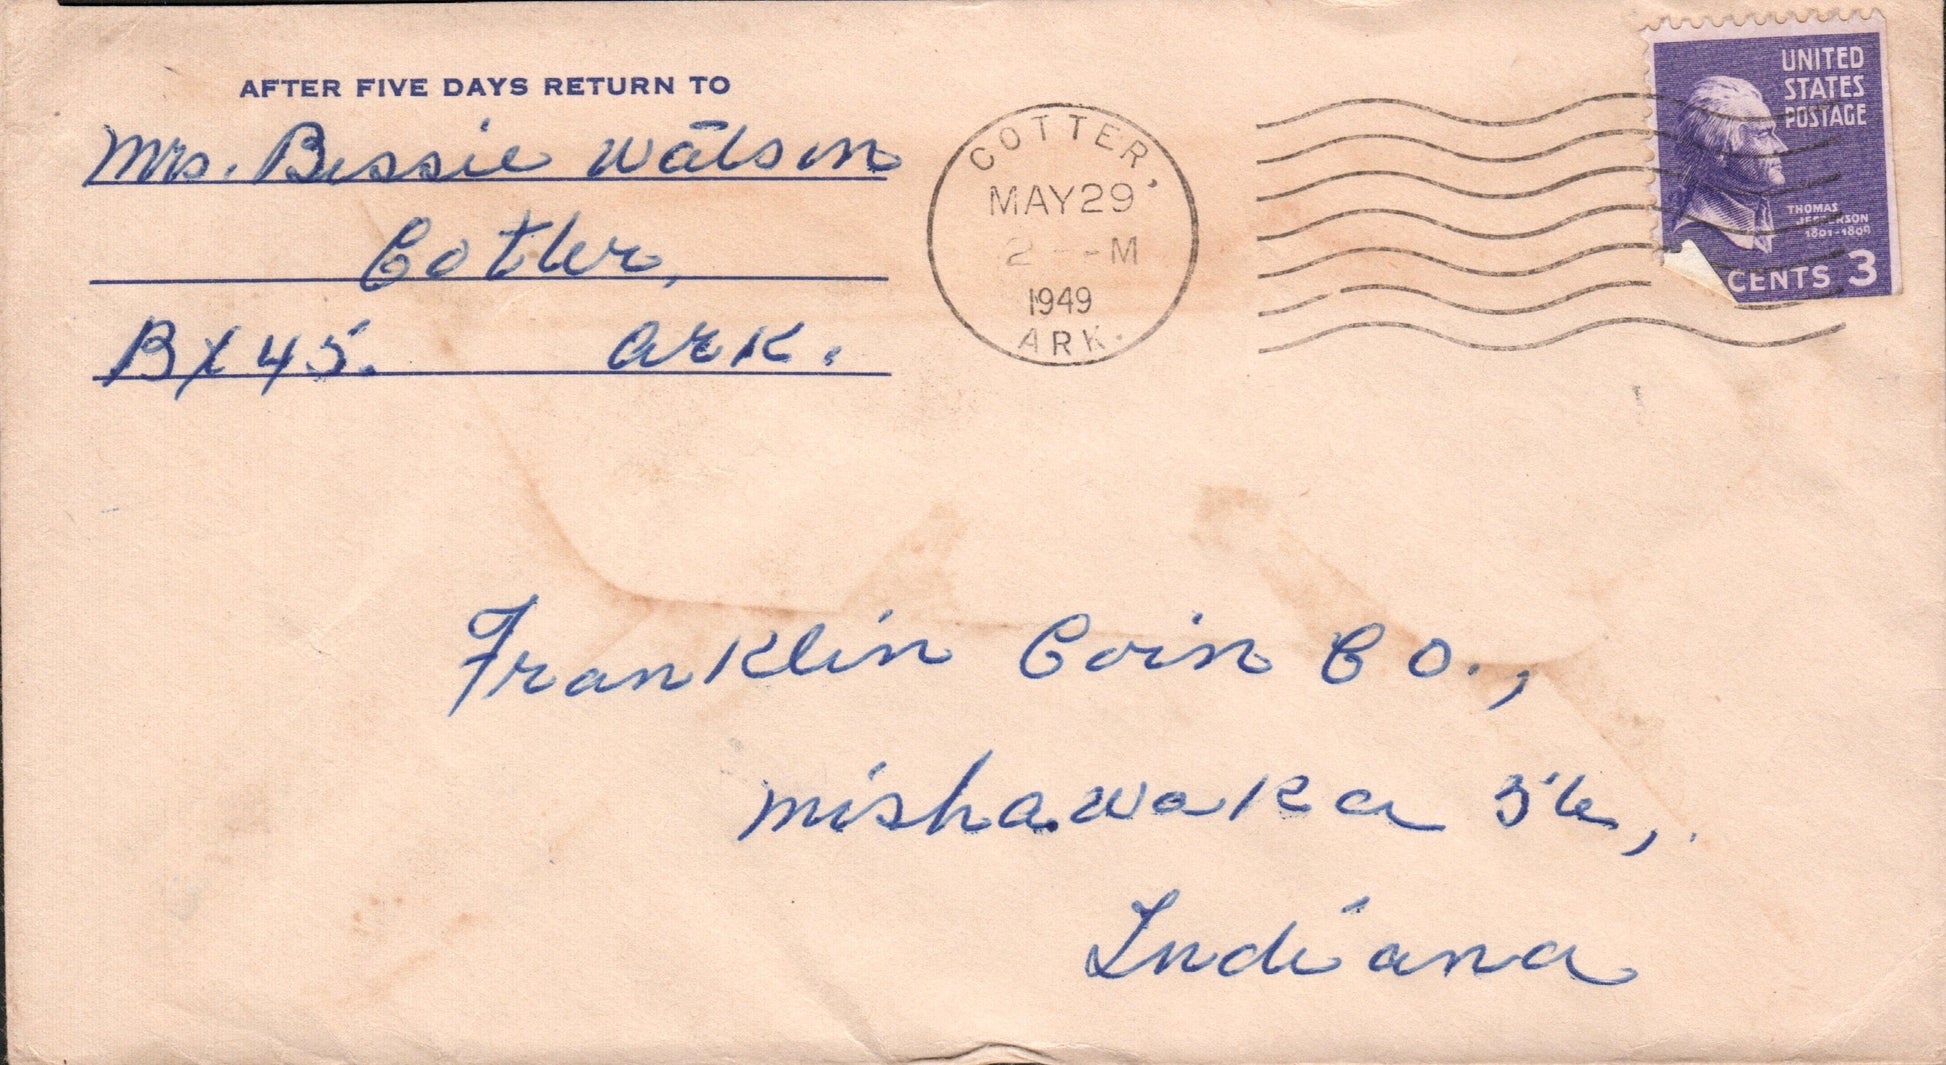 AFTER FIVE DAYS RETURN TO
Mrs. Bessie Watson
Cotter,
Bx 45. Ark.
COTTER,
MAY 29
2 -M
1949
ARK.
UNITED
STATES
POSTAGE
THOMAS
JEFFERSON
1801-1809
CENTS 3
Franklin Coin Co.,
Mishawaka 56,
Indiana